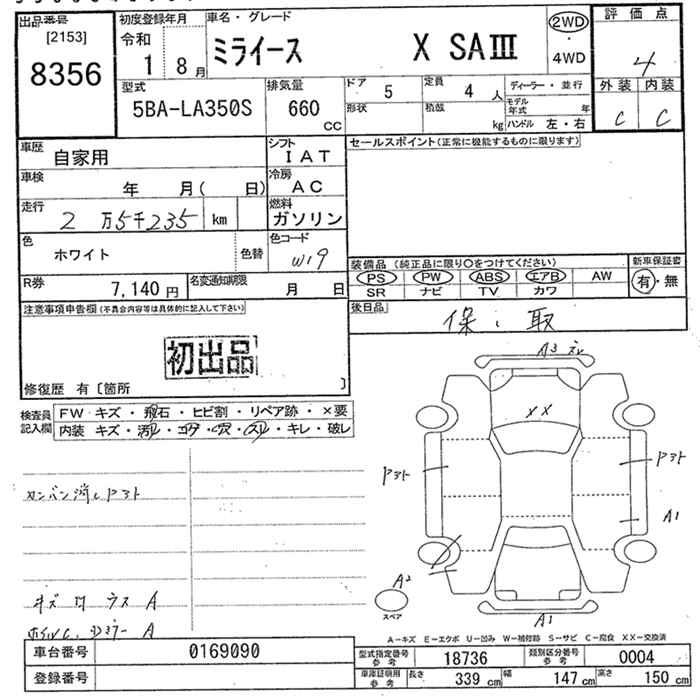 出品番号
[2153]
8356
初度登録年月
令和
1 8月
車名・グレード
ミライース X SAⅢ
2WD
・
4WD
評価点
4
外装 内装
C C
型式
5BA-LA350S
排気量
660
CC
ドア 5
定員 4 人
形状
積載
kg
ディーラー・並行
モデル年式 年
ハンドル 左・右
車歴
自家用
シフト
IAT
車検
年 月( 日)
冷房
AC
走行
2 万5千235 km
燃料
ガソリン
色
ホワイト
色替
色コード
W19
R券
7,140 円
名変通知期限
月 日
セールスポイント(正常に機能するものに限ります)
装備品 (純正品に限り〇をつけてください)
PS PW ABS エアB AW
SR ナビ TV カワ
新車保証書
有・無
後日品
保、取
注意事項申告欄(不具合内容等は具体的に記入して下さい)
初出品
修復歴 有〔箇所 〕
検査員記入欄
FW キズ・飛石・ヒビ割・リペア跡・×要
内装 キズ・汚れ・コゲ・穴・スレ・キレ・破レ
カンバン消しPヌケ
キズ
ガラス A
A
A3
XX
A1
A2
スペア
A1
A-キズ E-エクボ U-凹み W-補修跡 S-サビ C-腐食 XX-交換済
車台番号
0169090
登録番号
型式指定番号
参考
18736
類別区分番号
参考
0004
車庫証明用
参考
長さ 339 cm
幅 147 cm
高さ 150 cm